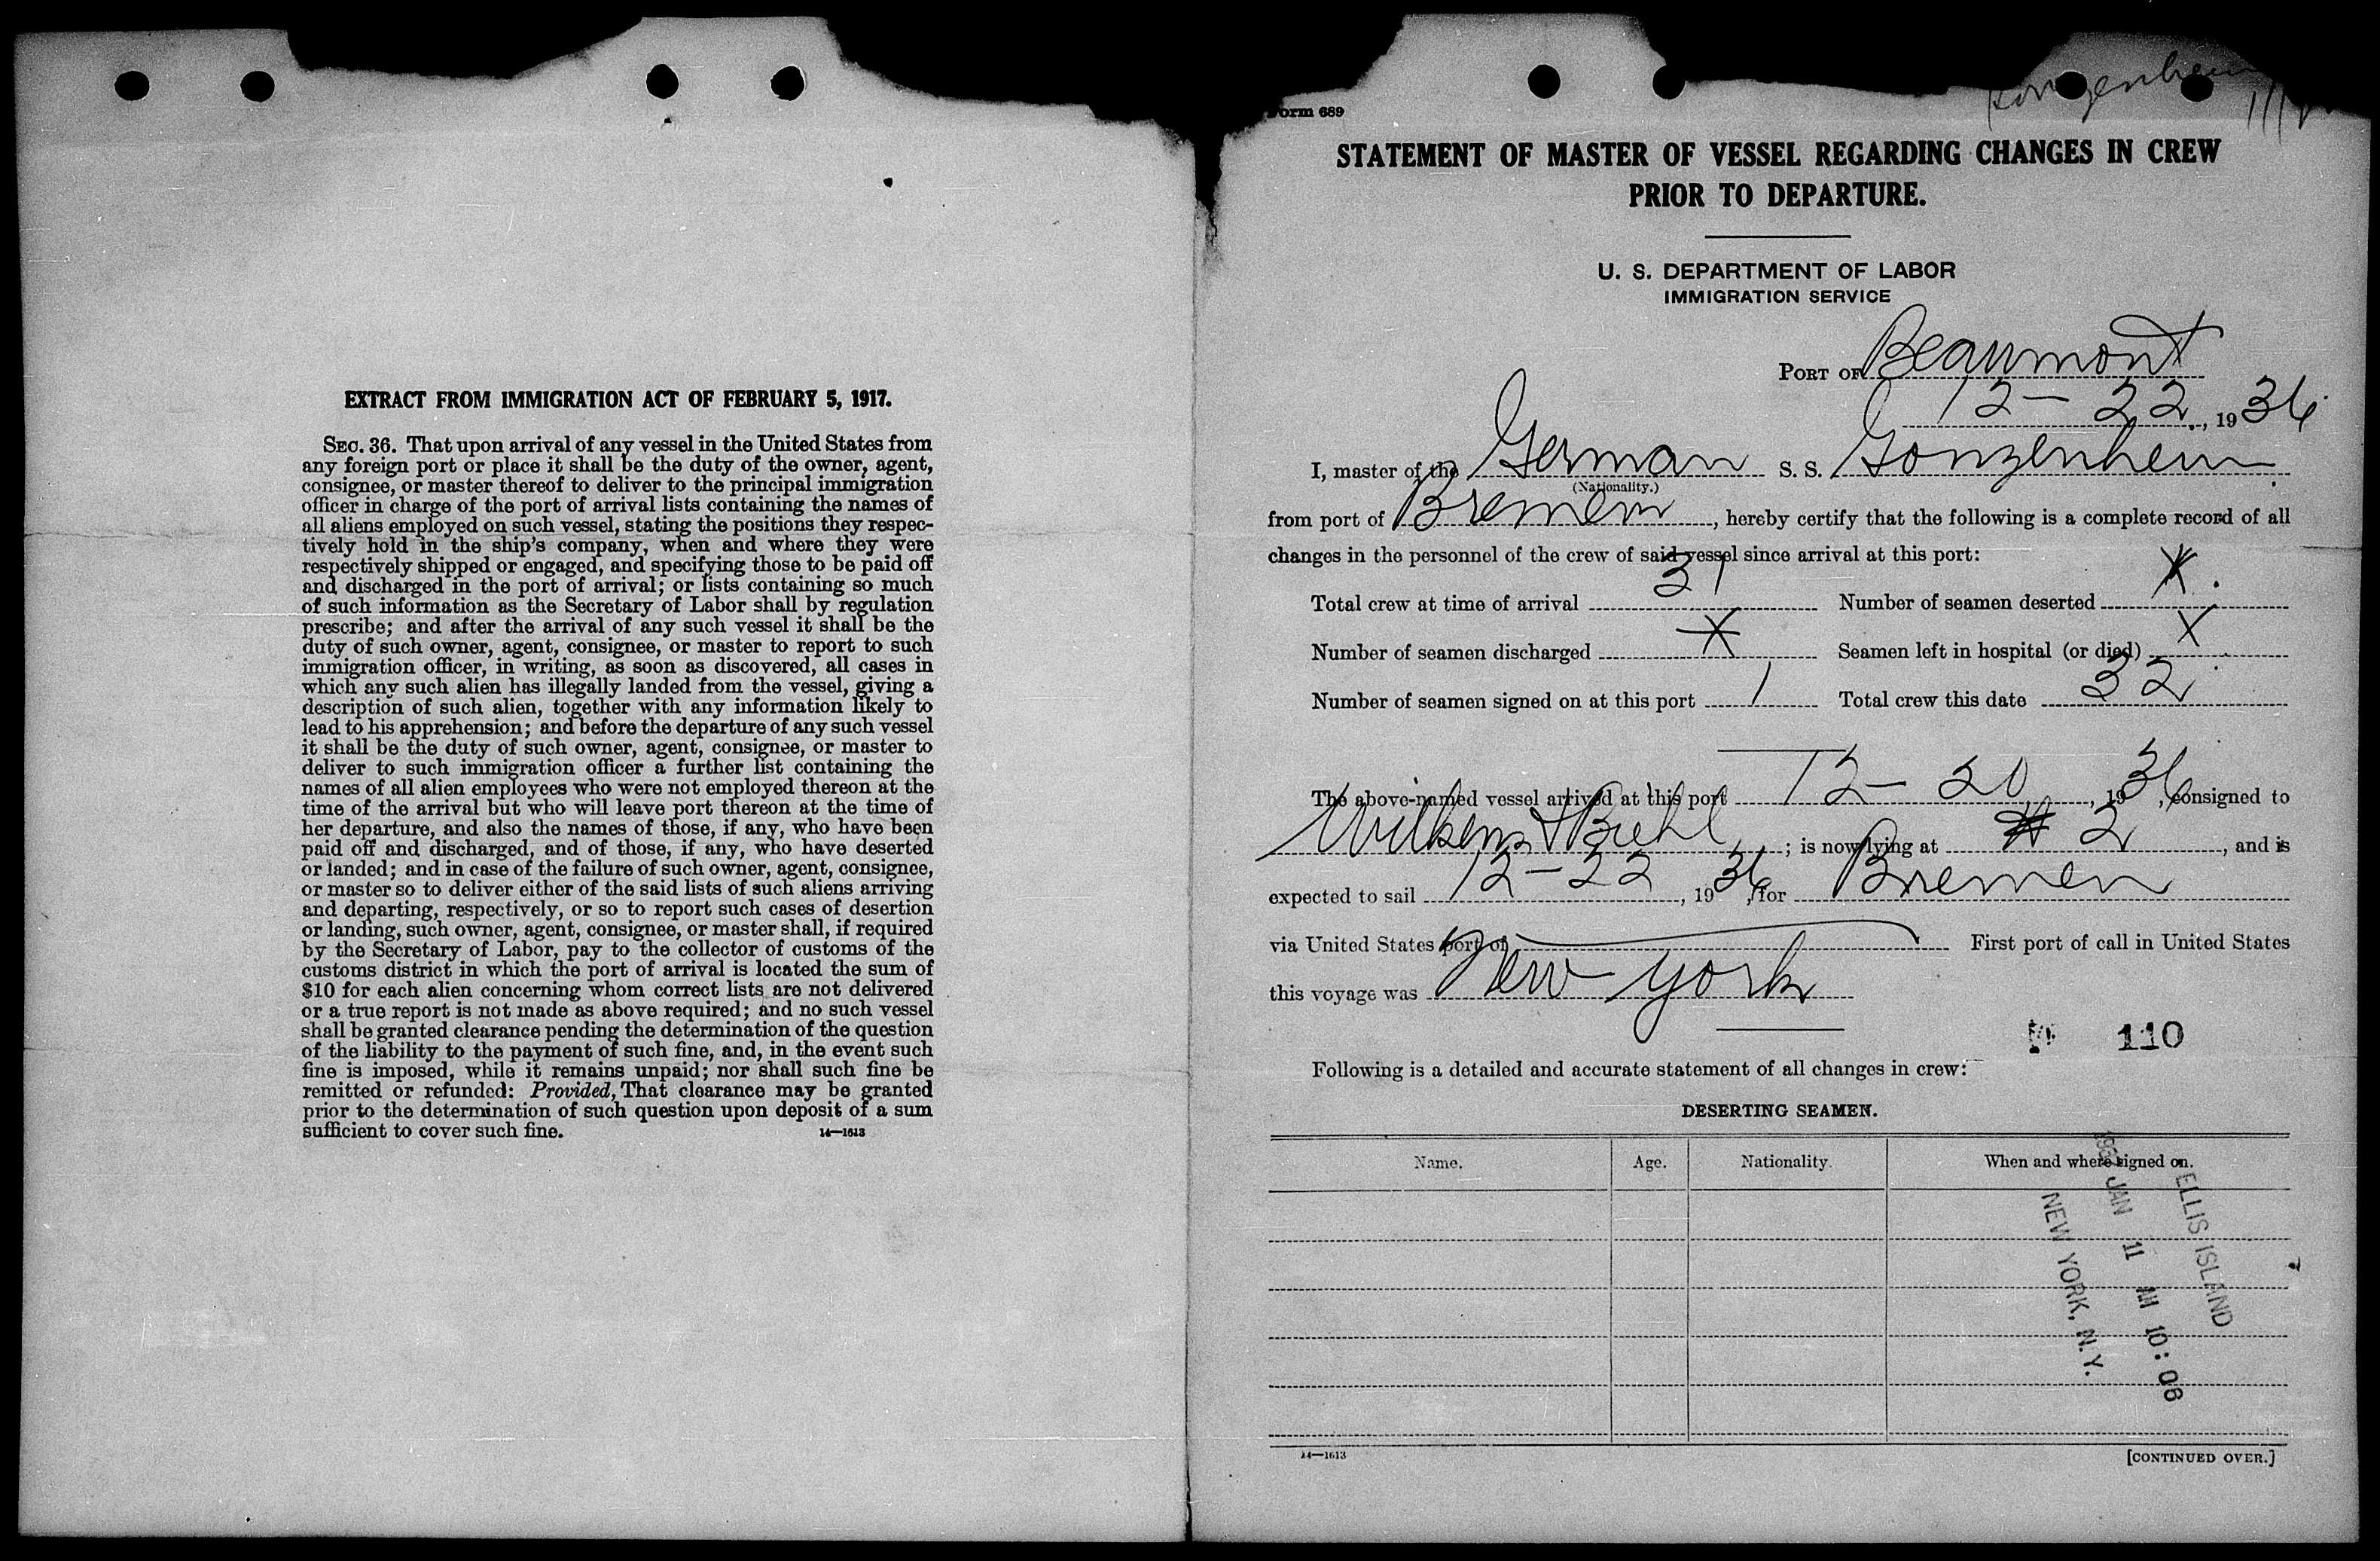 EXTRACT FROM IMMIGRATION ACT OF FEBRUARY 5, 1917.
SEC. 36. That upon arrival of any vessel in the United States from
any foreign port or place it shall be the duty of the owner, agent,
consignee, or master thereof to deliver to the principal immigration
officer in charge of the port of arrival lists containing the names of
all aliens employed on such vessel, stating the positions they respec-
tively hold in the ship's company, when and where they were
respectively shipped or engaged, and specifying those to be paid off
and discharged in the port of arrival; or lists containing so much
of such information as the Secretary of Labor shall by regulation
prescribe; and after the arrival of any such vessel it shall be the
duty of such owner, agent, consignee, or master to report to such
immigration officer, in writing, as soon as discovered, all cases in
which any such alien has illegally landed from the vessel, giving a
description of such alien, together with any information likely to
lead to his apprehension; and before the departure of any such vessel
it shall be the duty of such owner, agent, consignee, or master to
deliver to such immigration officer a further list containing the
names of all alien employees who were not employed thereon at the
time of the arrival but who will leave port thereon at the time of
her departure, and also the names of those, if any, who have been
paid off and discharged, and of those, if any, who have deserted
or landed; and in case of the failure of such owner, agent, consignee,
or master so to deliver either of the said lists of such aliens arriving
and departing, respectively, or so to report such cases of desertion
or landing, such owner, agent, consignee, or master shall, if required
by the Secretary of Labor, pay to the collector of customs of the
customs district in which the port of arrival is located the sum of
$10 for each alien concerning whom correct lists are not delivered
or a true report is not made as above required; and no such vessel
shall be granted clearance pending the determination of the question
of the liability to the payment of such fine, and, in the event such
fine is imposed, while it remains unpaid; nor shall such fine be
remitted or refunded: Provided, That clearance may be granted
prior to the determination of such question upon deposit of a sum
sufficient to cover such fine. 14—1613
Gonzenheim
Form 689
STATEMENT OF MASTER OF VESSEL REGARDING CHANGES IN CREW
PRIOR TO DEPARTURE.
U. S. DEPARTMENT OF LABOR
IMMIGRATION SERVICE
PORT OF Beaumont
12-22, 1936
I, master of the German S. S. Gonzenheim
(Nationality.)
from port of Bremen, hereby certify that the following is a complete record of all
changes in the personnel of the crew of said vessel since arrival at this port:
Total crew at time of arrival 31 Number of seamen deserted X
Number of seamen discharged X Seamen left in hospital (or died) X
Number of seamen signed on at this port 1 Total crew this date 32
The above-named vessel arrived at this port 12-20, 1936, consigned to
Wilkens & Biehl; is now lying at # 2, and is
expected to sail 12-22, 1936, for Bremen
via United States port of First port of call in United States
this voyage was New York
110
Following is a detailed and accurate statement of all changes in crew:
DESERTING SEAMEN.
Name. Age. Nationality. When and where signed on.
ELLIS ISLAND
1937 JAN 11 AM 10:06
NEW YORK, N.Y.
14—1613 [CONTINUED OVER.]